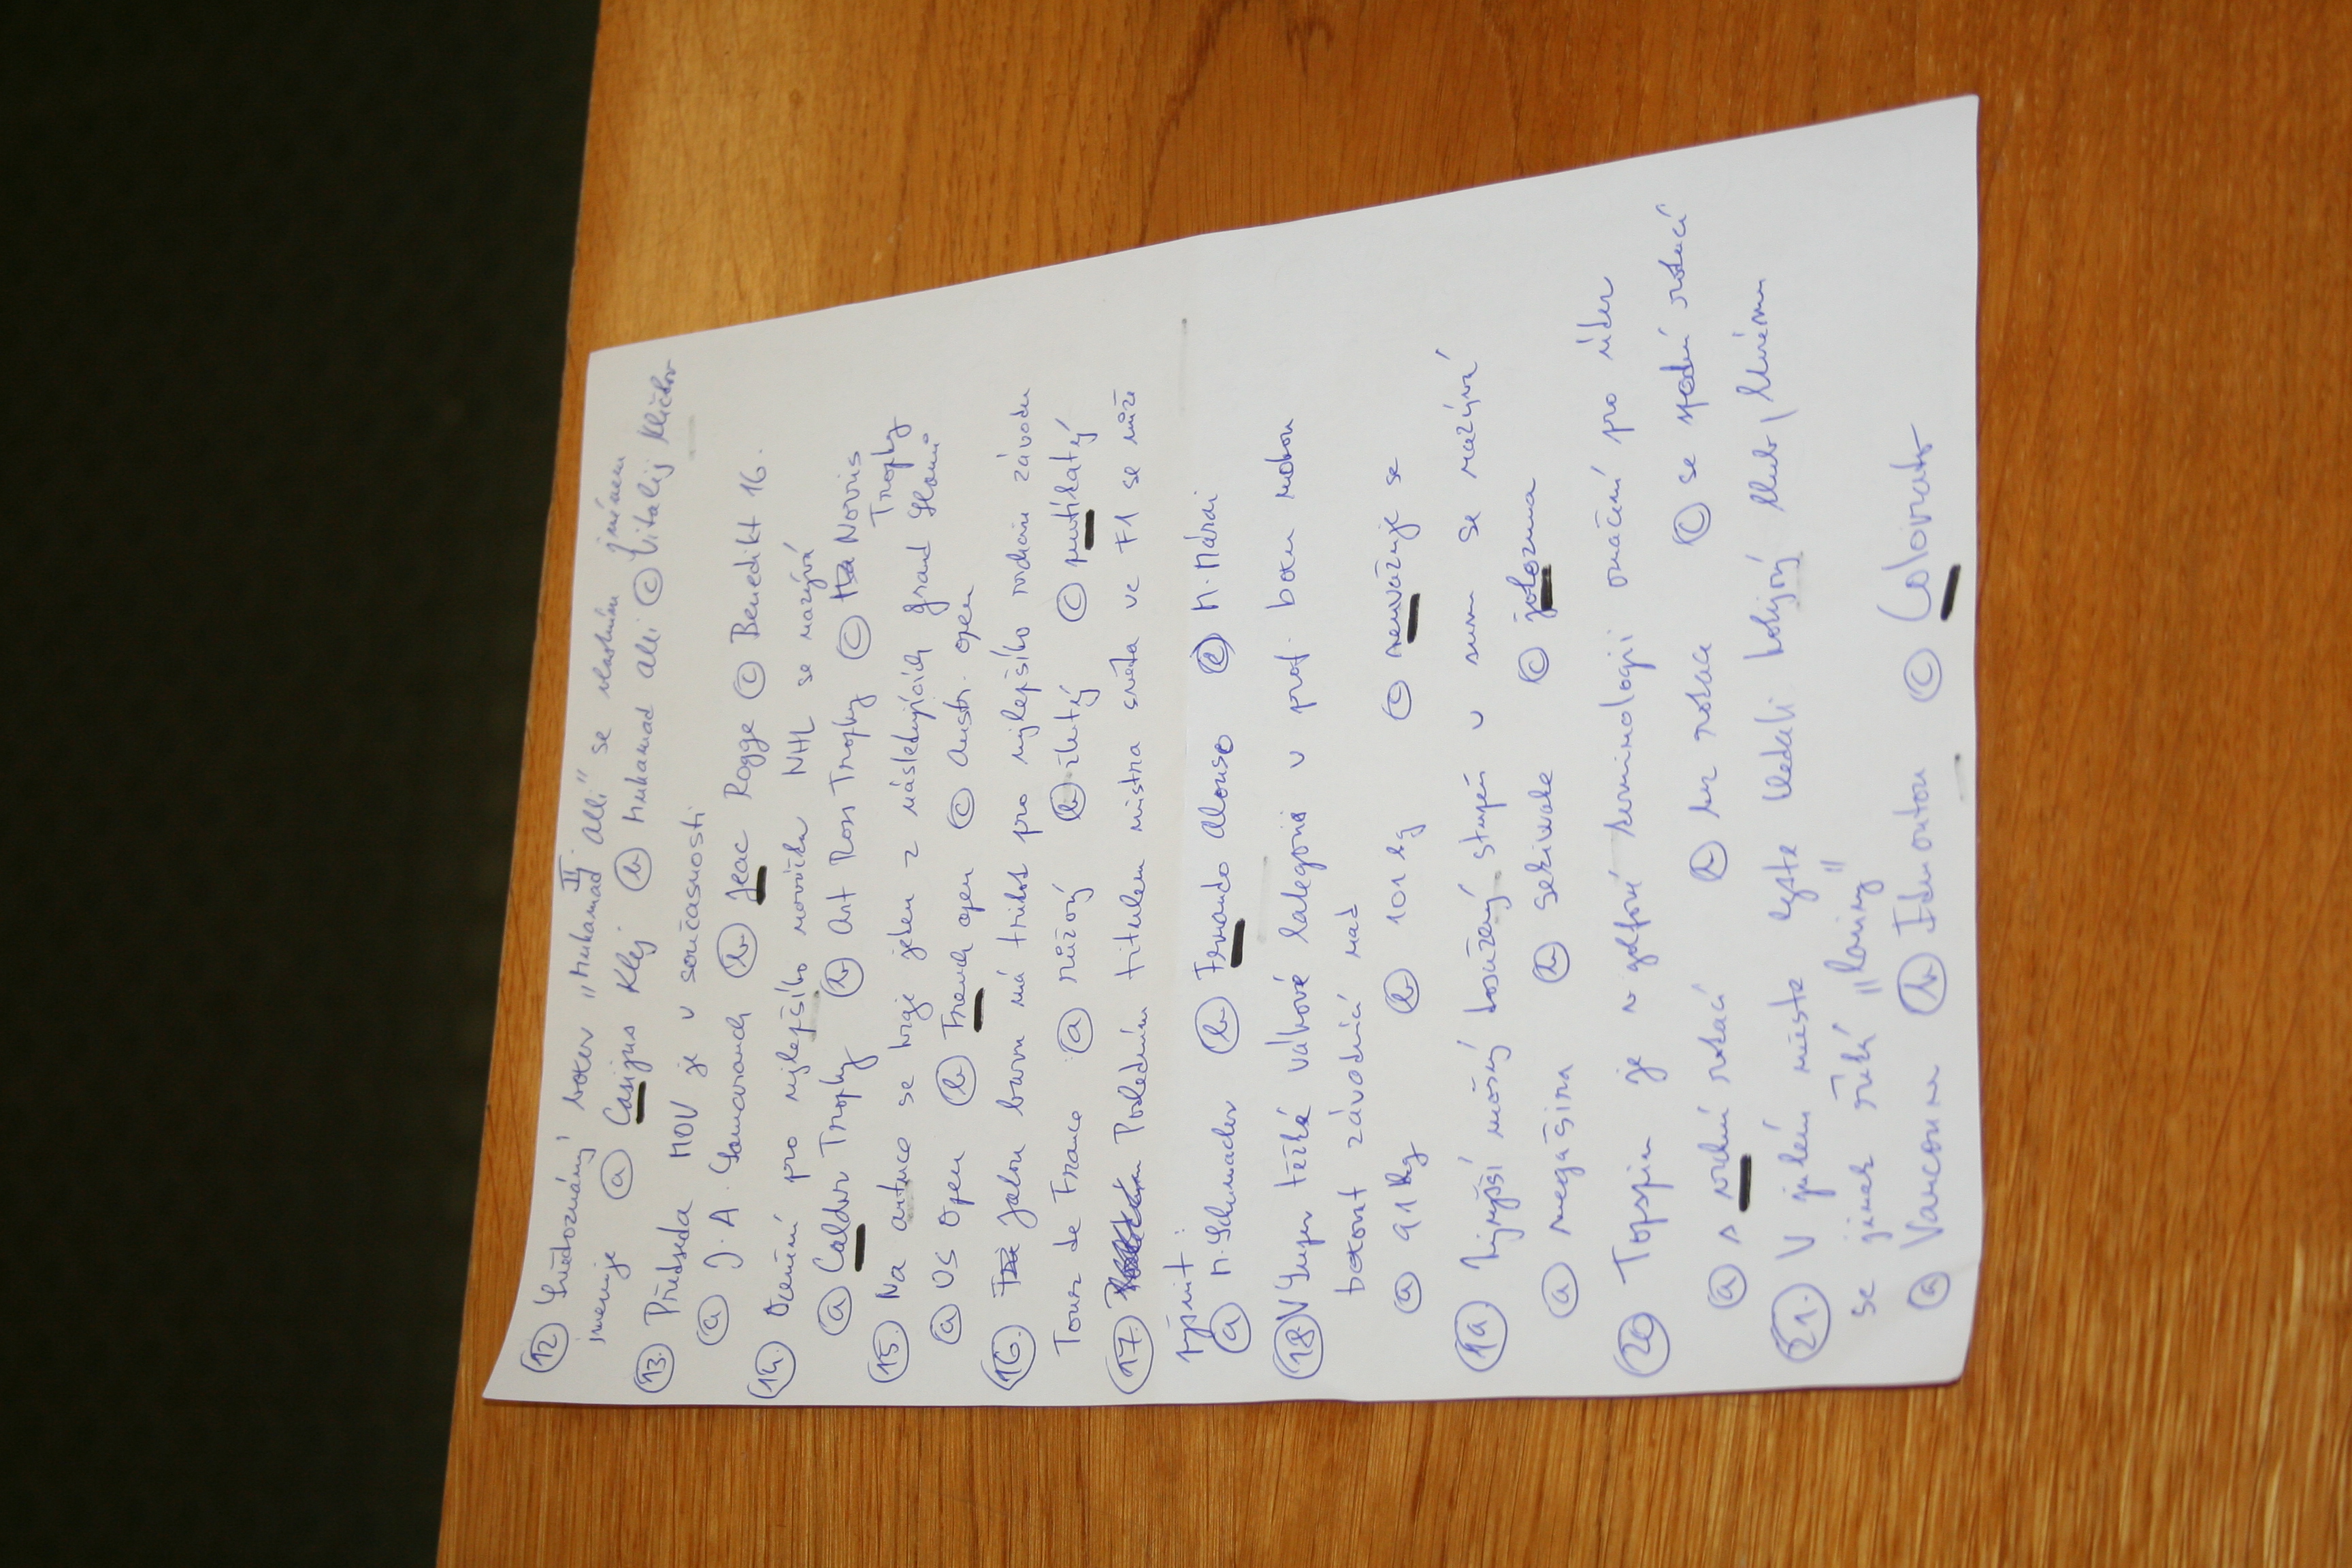 12 Světoznámý boxer "Muhamad II. Alli" se vlastním jménem
jmenuje a Casijus Klej b Muhamad Alli c Vitalij Kličkov
13. Předseda MOV je v současnosti
a J. A. Samaranch b Jeac Rogge c Benedikt 16.
14. Ocenění pro nejlepšího nováčka NHL se nazývá
a Calder Trophy b Art Ross Trophy c Norris Trophy
15. Na antuce se hraje jeden z následujících Grand Slamů
a US Open b French open c Austr. open
16. Jakou barvu má trikot pro nejlepšího vrchaře závodu
Tour de France a růžový b žlutý c puntíkatý
17. Posledním titulem mistra světa ve F1 se může
pyšnit:
a M. Schumacher b Fernando Alonso c N. Márai
18. V Super těžké váhové kategorii v prof. boxu mohou
boxovat závodníci nad
a 91 kg b 101 kg c neuvažuje se
19 Nejvyšší možný dosažený stupeň v sumu se nazývá
a megašira b sekiwake c jokozuna
20 Topspin je v golfové terminologii označení pro úder
a s vrchní rotací b bez rotace c se spodní rotací
21. V jakém městě byste hledali hokejový klub, kterému
se jinak říká "Laviny"
a Vancouver b Edmonton c Colorado